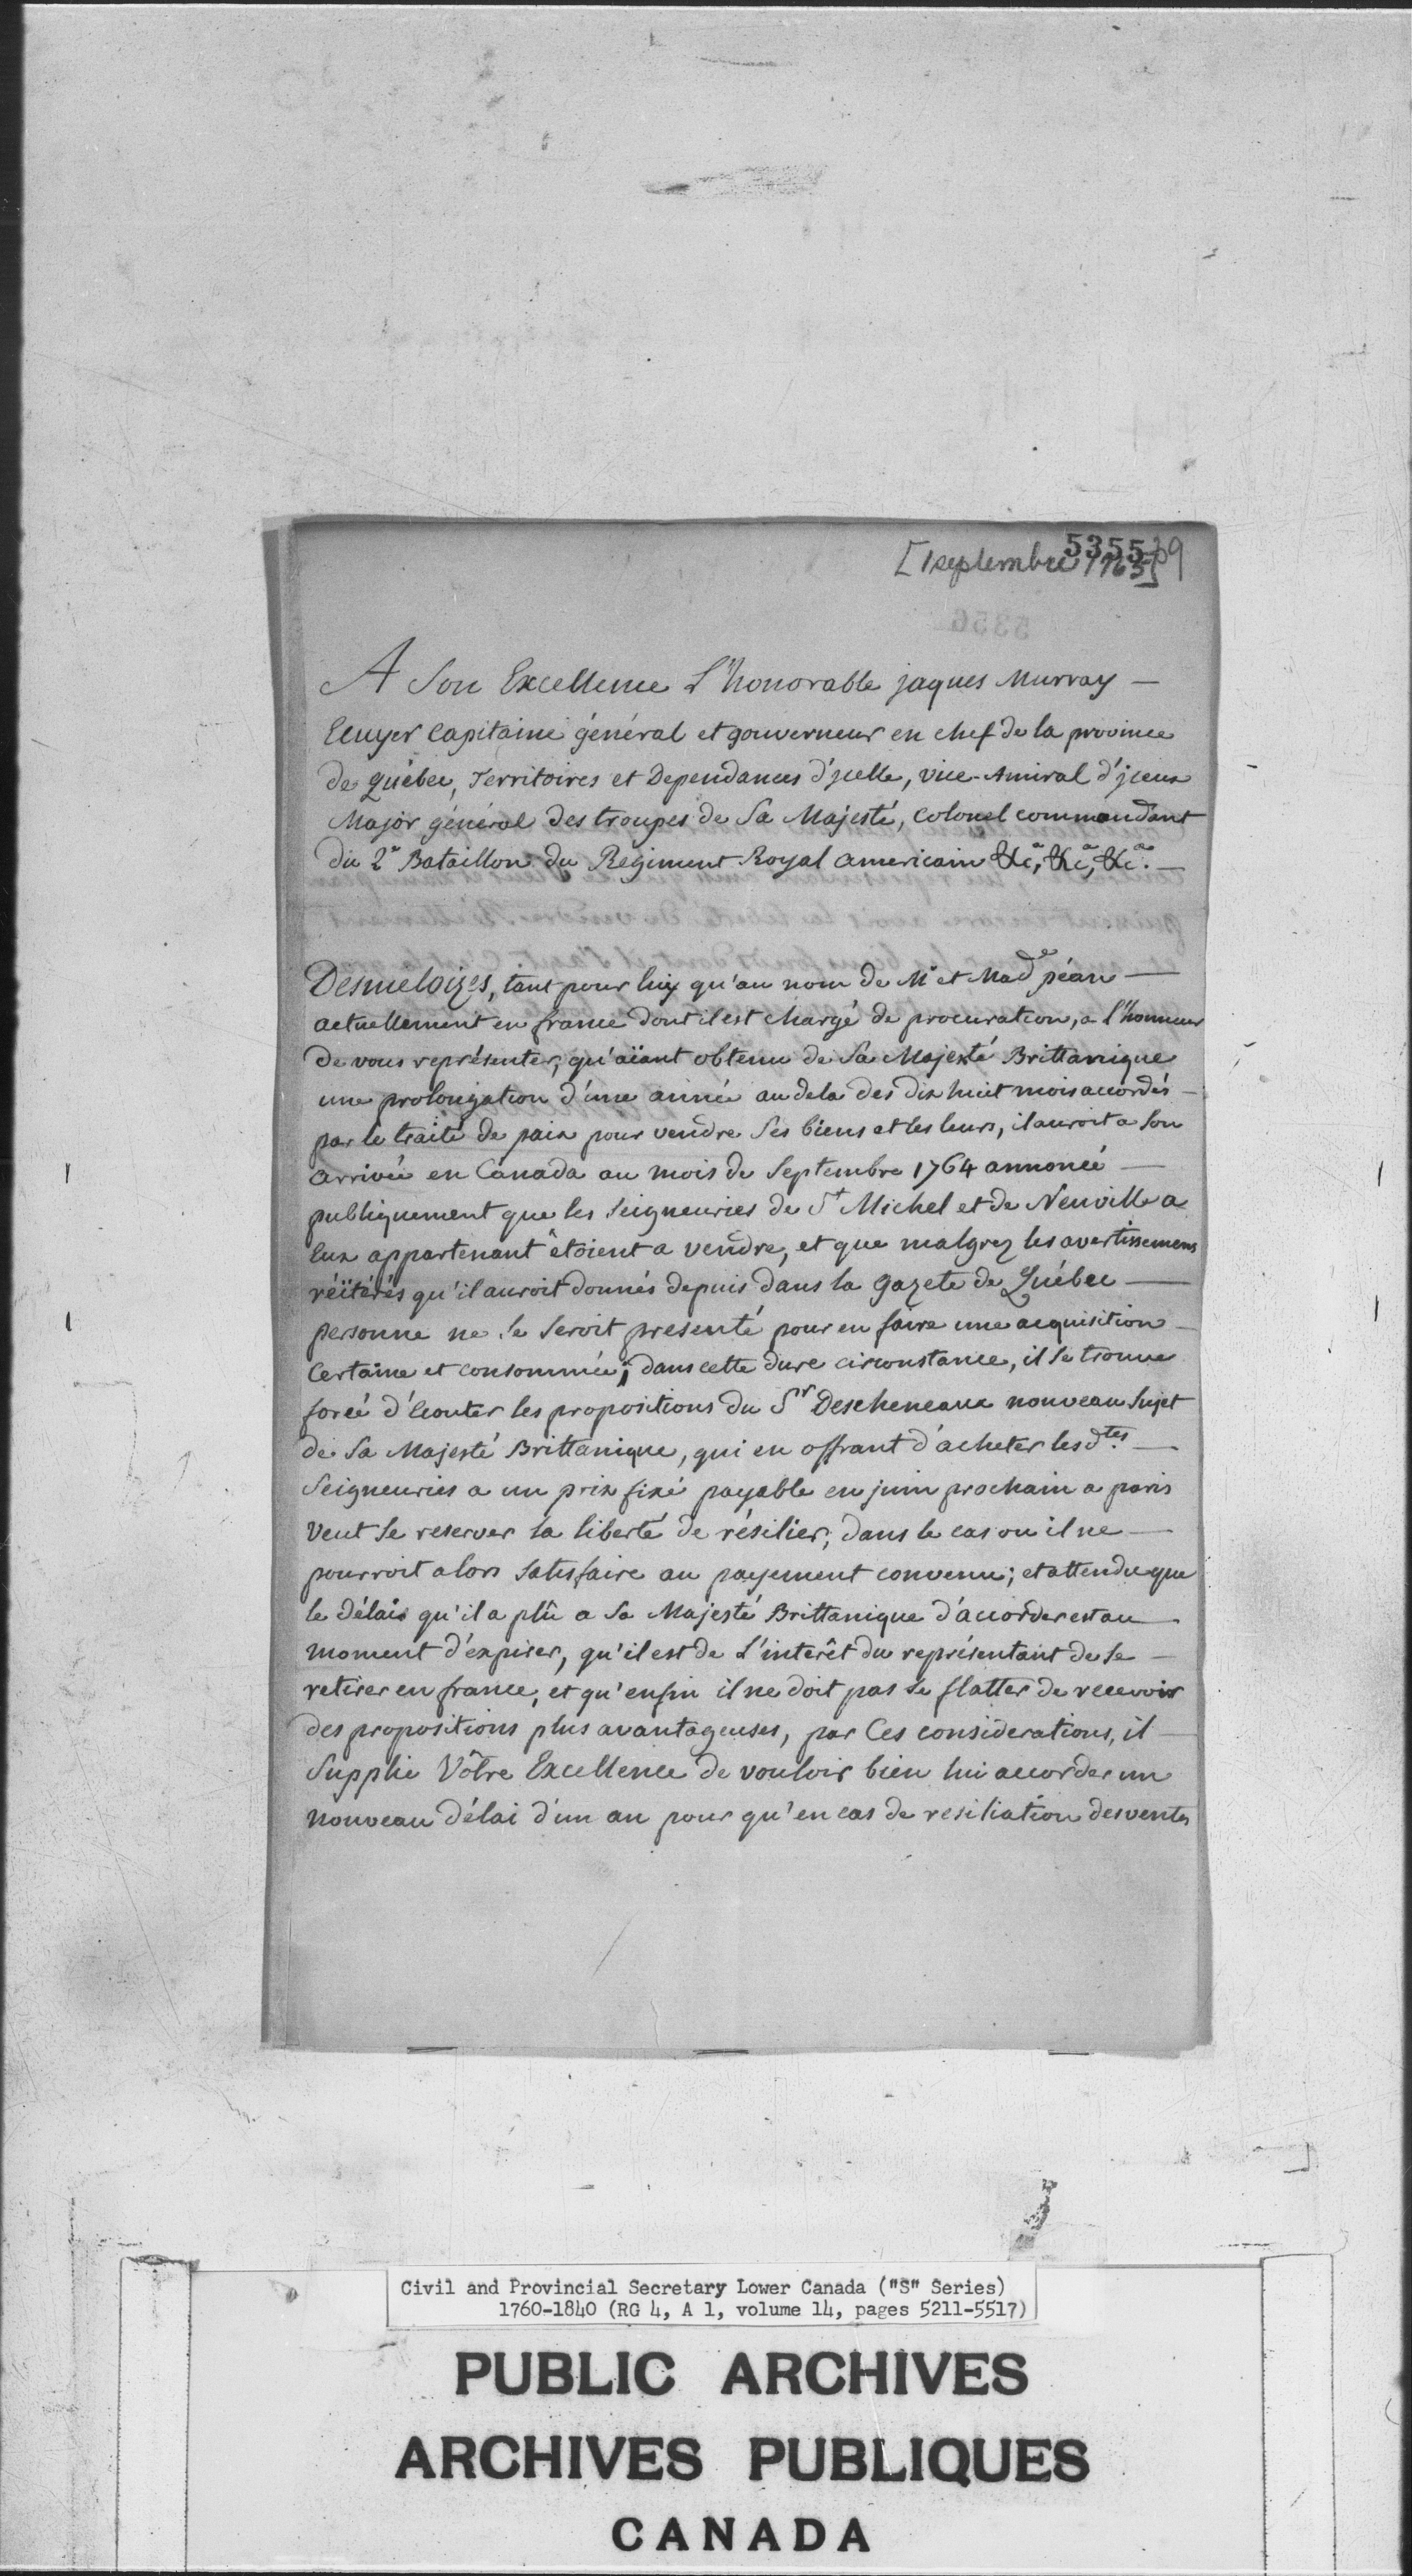 5355
[1 septembre 1765]
A Son Excellence L'honorable jaques Murray —
Ecuyer Capitaine général et gouverneur en chef de la province
de Québec, Territoires et Dependances d'ycelle, vice-Amiral d'jceux
Major général des troupes de Sa Majesté, Colonel commandant
du 2e Bataillon du Regiment Royal americain &ca, &ca, &ca. —
Desmeloizes, tant pour luy qu'au nom de Mr et Made péan —
actuellement en france dont il est chargé de procuration, a l'honneur
de vous représenter, qu'aïant obtenu de Sa Majesté Brittanique
une prolongation d'une année au dela des dix huit mois accordés —
par le traité de paix pour vendre Ses biens et les leurs, il auroit a Son
arrivée en Canada au mois de Septembre 1764 annoncé —
publiquement que les Seigneuries de St Michel et de Neuville a
Eux appartenant êtoient a vendre, et que malgrez les avertissemens
réïtérés qu'il auroit donnés depuis dans la gazete de Québec —
personne ne Se Seroit presenté pour en faire une acquisition —
Certaine et consommée; dans cette dure circonstance, il Se trouve
forcé d'Ecouter les propositions du Sr Descheneaux nouveau Sujet
de Sa Majesté Brittanique, qui en offrant d'acheter les dtes —
Seigneuries a un prix fixé payable en juin prochain a paris
Veut Se reserver la liberté de résilier, dans le cas ou il ne —
pourroit alors Satisfaire au payement convenu; et attendu que
le délais qu'il a plû a Sa Majesté Brittanique d'accorder est au —
moment d'expirer, qu'il est de L'interêt du représentant de Se —
retirer en france, et qu'enfin il ne doit pas Se flatter de recevoir
des propositions plus avantageuses, par Ces considérations, il —
Supplie Vôtre Excellence de vouloir bien lui accorder un
nouveau délai d'un an pour qu'en cas de resiliation des ventes
Civil and Provincial Secretary Lower Canada ("S" Series)
1760-1840 (RG 4, A 1, volume 14, pages 5211-5517)
PUBLIC ARCHIVES
ARCHIVES PUBLIQUES
CANADA